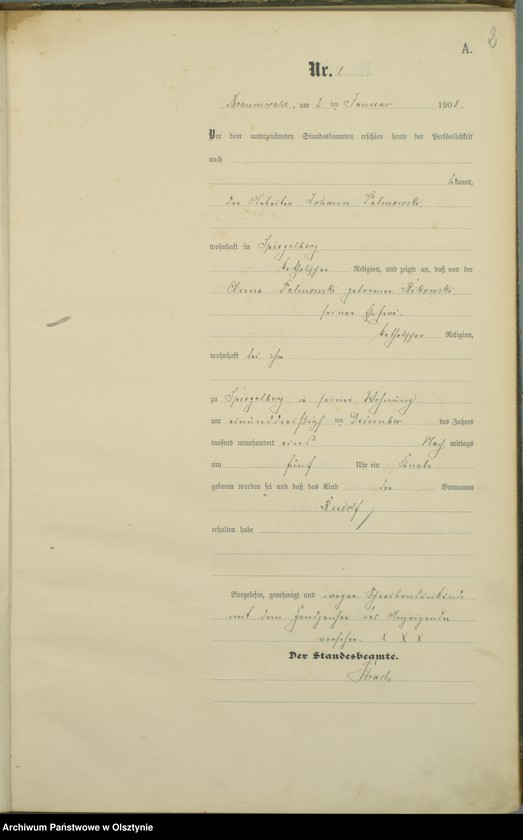 2
A.
Nr. 1
Braunswalde, am 2 ten Januar 1902.
Vor dem unterzeichneten Standesbeamten erschien heute der Persönlichkeit
nach
bekannt,
der Arbeiter Johann Palmowski,
wohnhaft in Spiegelberg
katholischer Religion, und zeigte an, daß von der
Anna Palmowski geborenen
seiner Ehefrau,
katholischer Religion,
wohnhaft bei ihm
zu Spiegelberg in seiner Wohnung
am einunddreißigsten Dezember des Jahres
tausend neunhundert eins Nachmittags
um fünf Uhr ein Knabe
geboren worden sei und daß das Kind den Vornamen
Rudolf
erhalten habe
Vorgelesen, genehmigt und wegen Schreibensunkunde
mit dem Handzeichen des Anzeigenden
versehen. X X X
Der Standesbeamte.
Archiwum Państwowe w Olsztynie